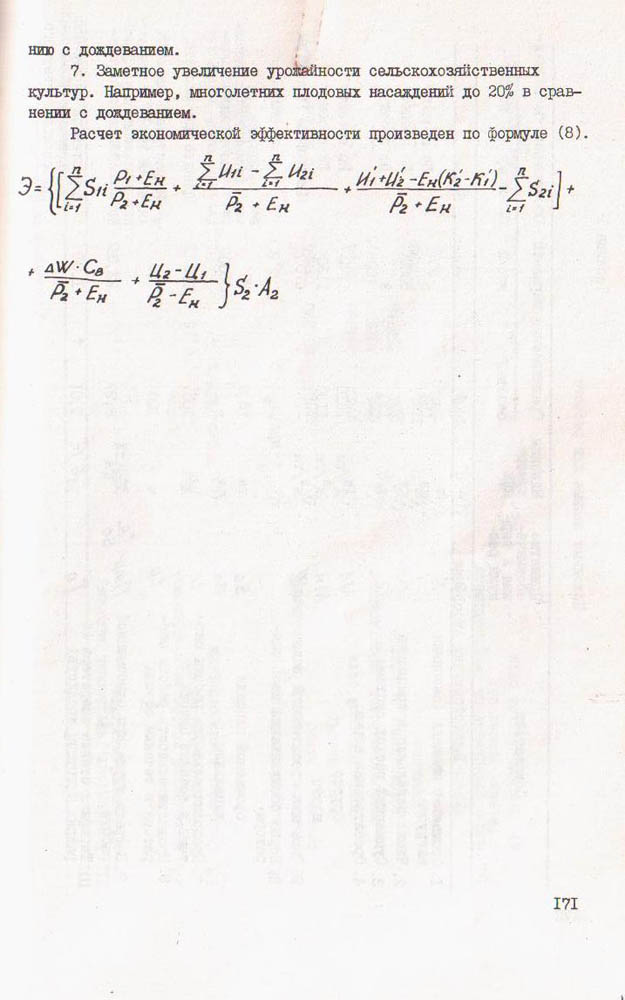 нию с дождеванием.
7. Заметное увеличение урожайности сельскохозяйственных
культур. Например, многолетних плодовых насаждений до 20% в срав-
нении с дождеванием.
Расчет экономической эффективности произведен по формуле (8).
Э = {[∑ⁿᵢ₌₁ S₁ᵢ (P₁ + Eн)/(P̄₂ + Eн) + (∑ⁿᵢ₌₁ И₁ᵢ - ∑ⁿᵢ₌₁ И₂ᵢ)/(P̄₂ + Eн) + (И₁' + И₂' - Eн(К₂' - К₁'))/(P̄₂ + Eн) - ∑ⁿᵢ₌₁ S₂ᵢ] +
+ (ΔW · Cв)/(P̄₂ + Eн) + (Ц₂ - Ц₁)/(P̄₂ - Eн)} S₂ · A₂
I7I